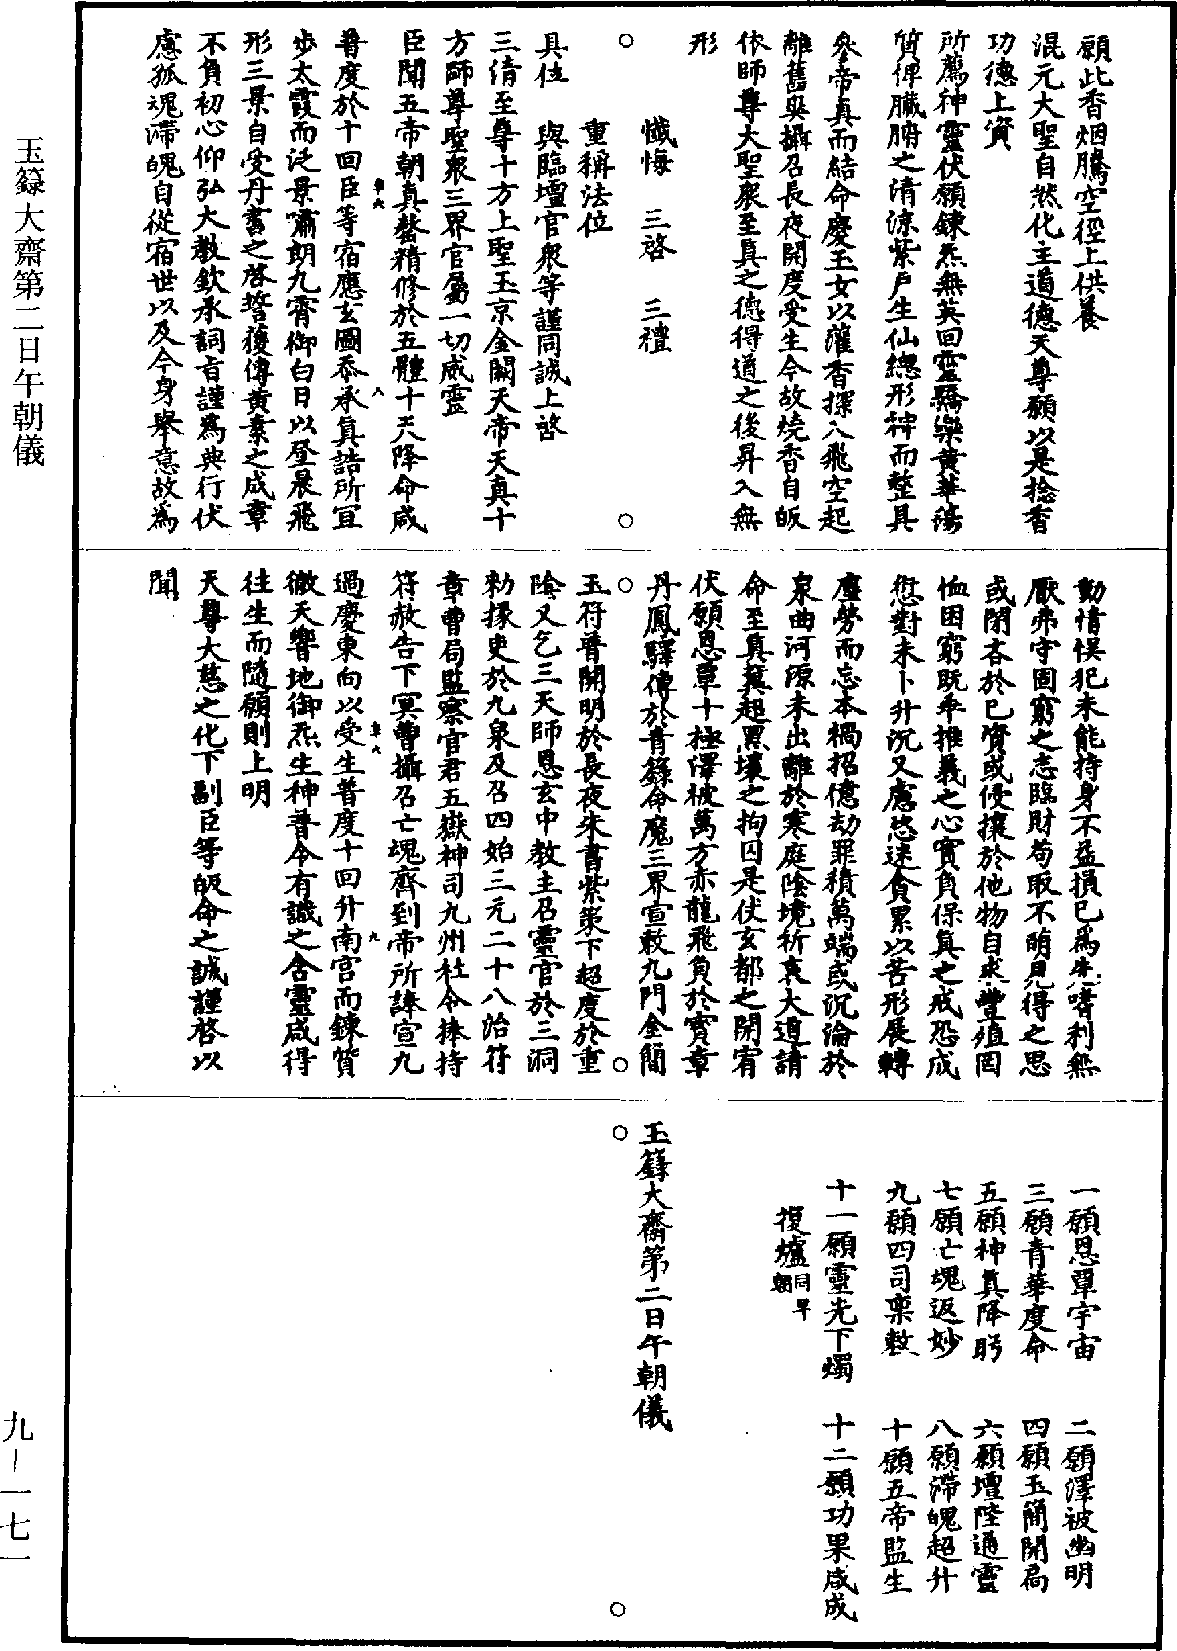 願此香烟騰空徑上供養
混元大聖自然化主道德天尊願以是捻香
功德上資
所薦神靈伏願鍊炁無英回靈驕樂黃華蕩
質俾臟腑之清涼紫戶生仙總形神而整具
參帝真而結命慶玉女以灌香探入飛空起
離舊與攝召長夜開度受生今故燒香自皈
依師尊大聖衆至真之德得道之後昇入無
形
懺悔 三啓 三禮
重稱法位
具位 與臨壇官衆等謹同誠上啓
三清至尊十方上聖玉京金闕天帝天真十
方師尊聖衆三界官屬一切威靈
臣聞五帝朝真罄精修於五體十天降命咸
普度於十回臣等宿應玄圖忝承真誥所宜
步太霞而泛景嘯朗九霄御白日以登晨飛
形三景自受丹書之啓誓獲傳黃素之成章
不負初心仰弘大教欽承詞旨謹爲典行伏
慮孤魂滯魄自從宿世以及今身舉意故爲
動情悞犯未能持身不益損已爲先嗜利無
厭弗守固窮之志臨財苟取不萌見得之思
或閉吝於已資或侵攘於他物自求豐殖罔
恤困窮既乖推義之心實負保真之戒恐成
愆對未卜升沉又慮悠迷貪累以苦形展轉
塵勞而忘本禍招億劫罪積萬端或沉淪於
泉曲河源未出離於寒庭陰境祈哀大道請
命至真冀起黑壤之拘囚是伏玄都之開宥
伏願恩覃十極澤被萬方赤龍飛負於寶章
丹鳳驛傳於青籙命魔三界宣敕九門金簡
玉符普開明於長夜朱書紫策下超度於重
陰又乞三天師恩玄中教主召靈官於三洞
勑掾吏於九泉及召四始三元二十八治符
章曹局監察官君五嶽神司九州社令捧持
符赦告下冥曹攝召亡魂齊到帝所諱宣九
過慶東向以受生普度十回升南宫而鍊質
徹天響地御炁生神普令有識之含靈咸得
往生而隨願則上明
天尊大慈之化下副臣等皈命之誠謹啓以
聞
一願恩覃宇宙 二願澤被幽明
三願青華度命 四願玉簡開局
五願神真降眄 六願壇陛通靈
七願亡魂返妙 八願滯魄超升
九願四司稟敕 十願五帝監生
十一願靈光下燭 十二願功果咸成
復爐同早朝
玉籙大齋第二日午朝儀
玉籙大齋第二日午朝儀
九-一七一